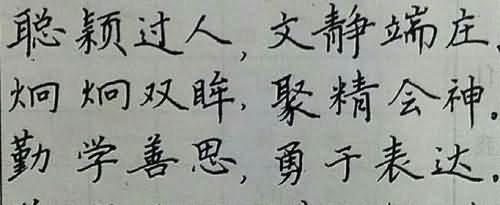 聪颖过人,文静端庄,
炯炯双眸,聚精会神。
勤学善思,勇于表达。